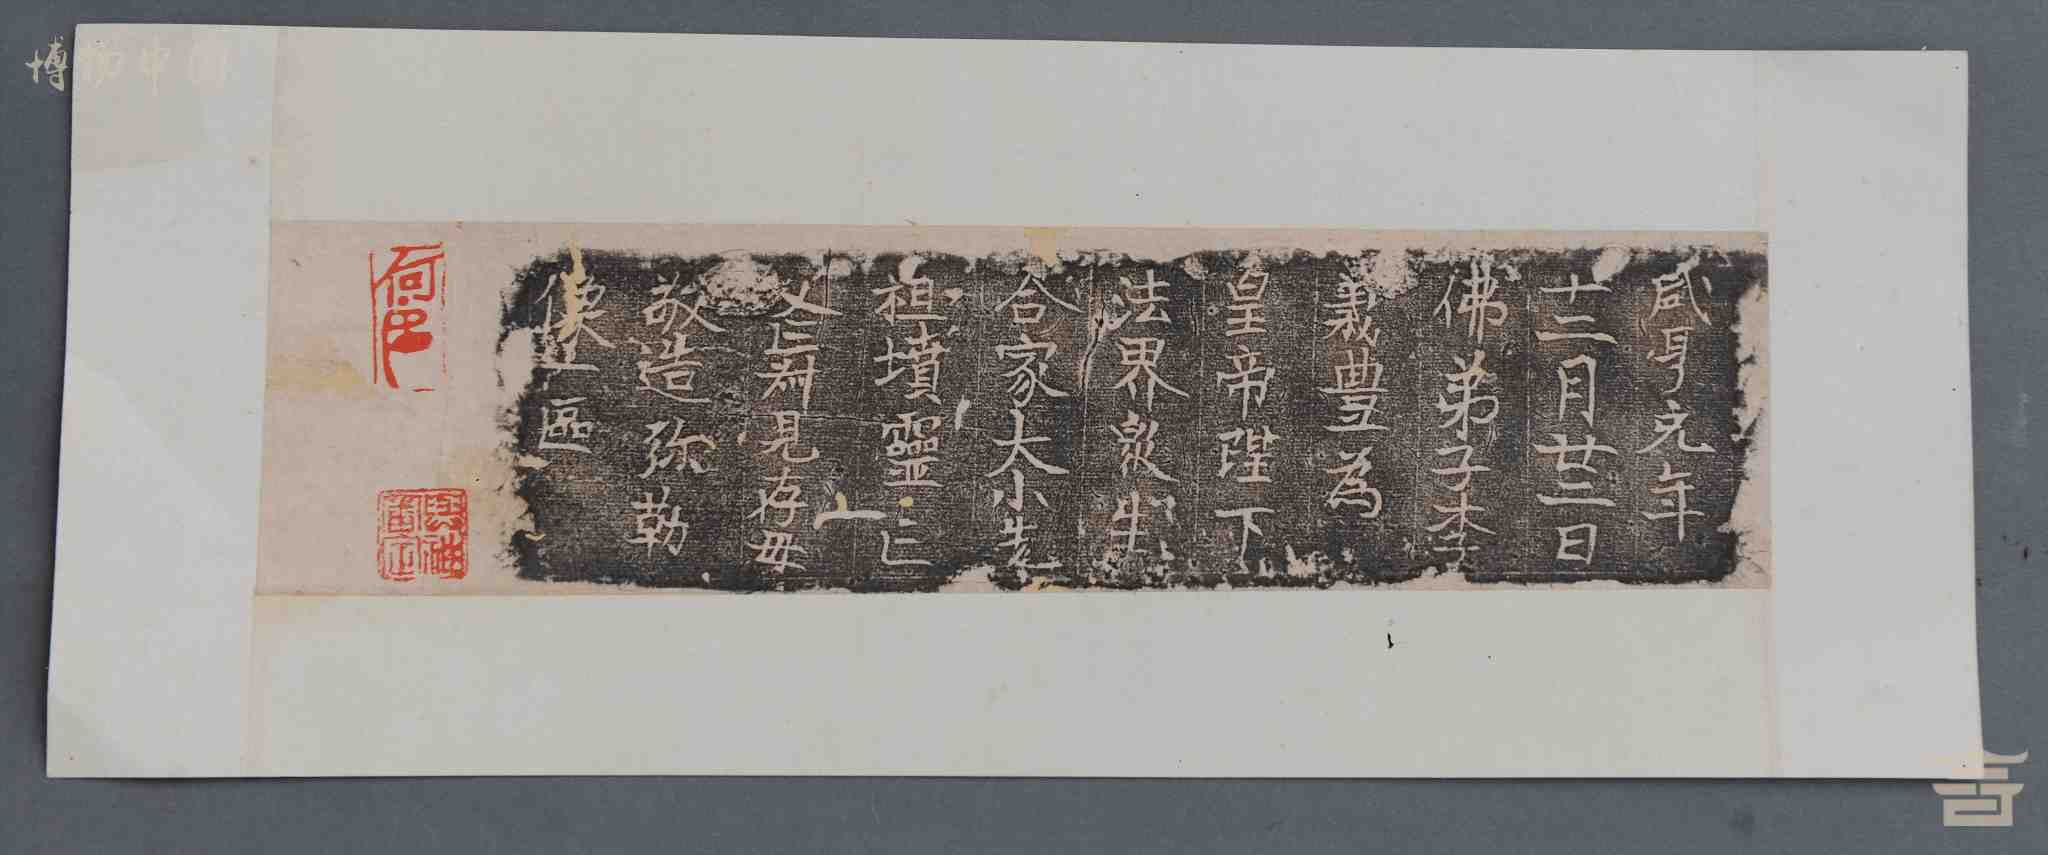 咸亨元年
十二月廿三日
佛弟子李
義豊為
皇帝陛下
法界衆生
合家大小先
祖墳靈亡
父亡 見存母
敬造弥勒
像一區
博物中国